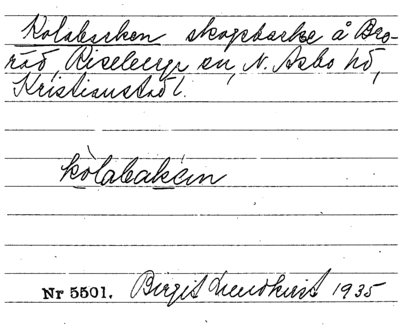 Kolabacken skogsbacke å Bro-
röd, Riseberga sn, N. Åsbo hd,
Kristianstad l.
kòlabakén
Nr 5501. Birgit Lundkvist 1935